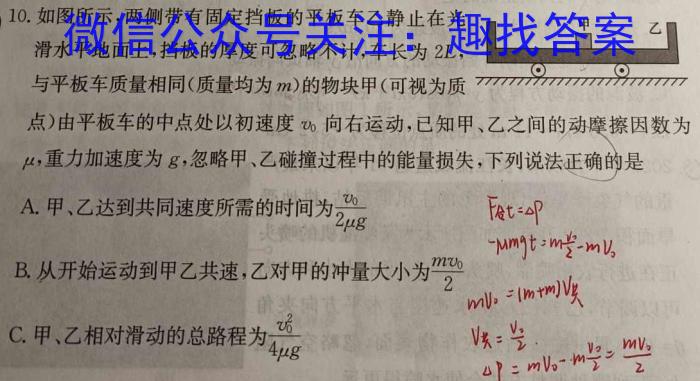 10. 如图所示,两侧带有固定挡板的平板车乙静止在光
微信公众号关注：趣找答案
乙
滑水平地面上,挡板的厚度可忽略不计,车长为 2L,
与平板车质量相同(质量均为 m)的物块甲(可视为质
点)由平板车的中点处以初速度 v₀ 向右运动,已知甲、乙之间的动摩擦因数为
μ,重力加速度为 g,忽略甲、乙碰撞过程中的能量损失,下列说法正确的是
A. 甲、乙达到共同速度所需的时间为 v₀/2μg
B. 从开始运动到甲乙共速,乙对甲的冲量大小为 mv₀/2
C. 甲、乙相对滑动的总路程为 v₀²/4μg
F合t=△P
-μmgt=m v₀/2-mV₀
mV₀=(m+m)V共
V共=V₀/2.
△P=mV₀-m V₀/2=mV₀/2